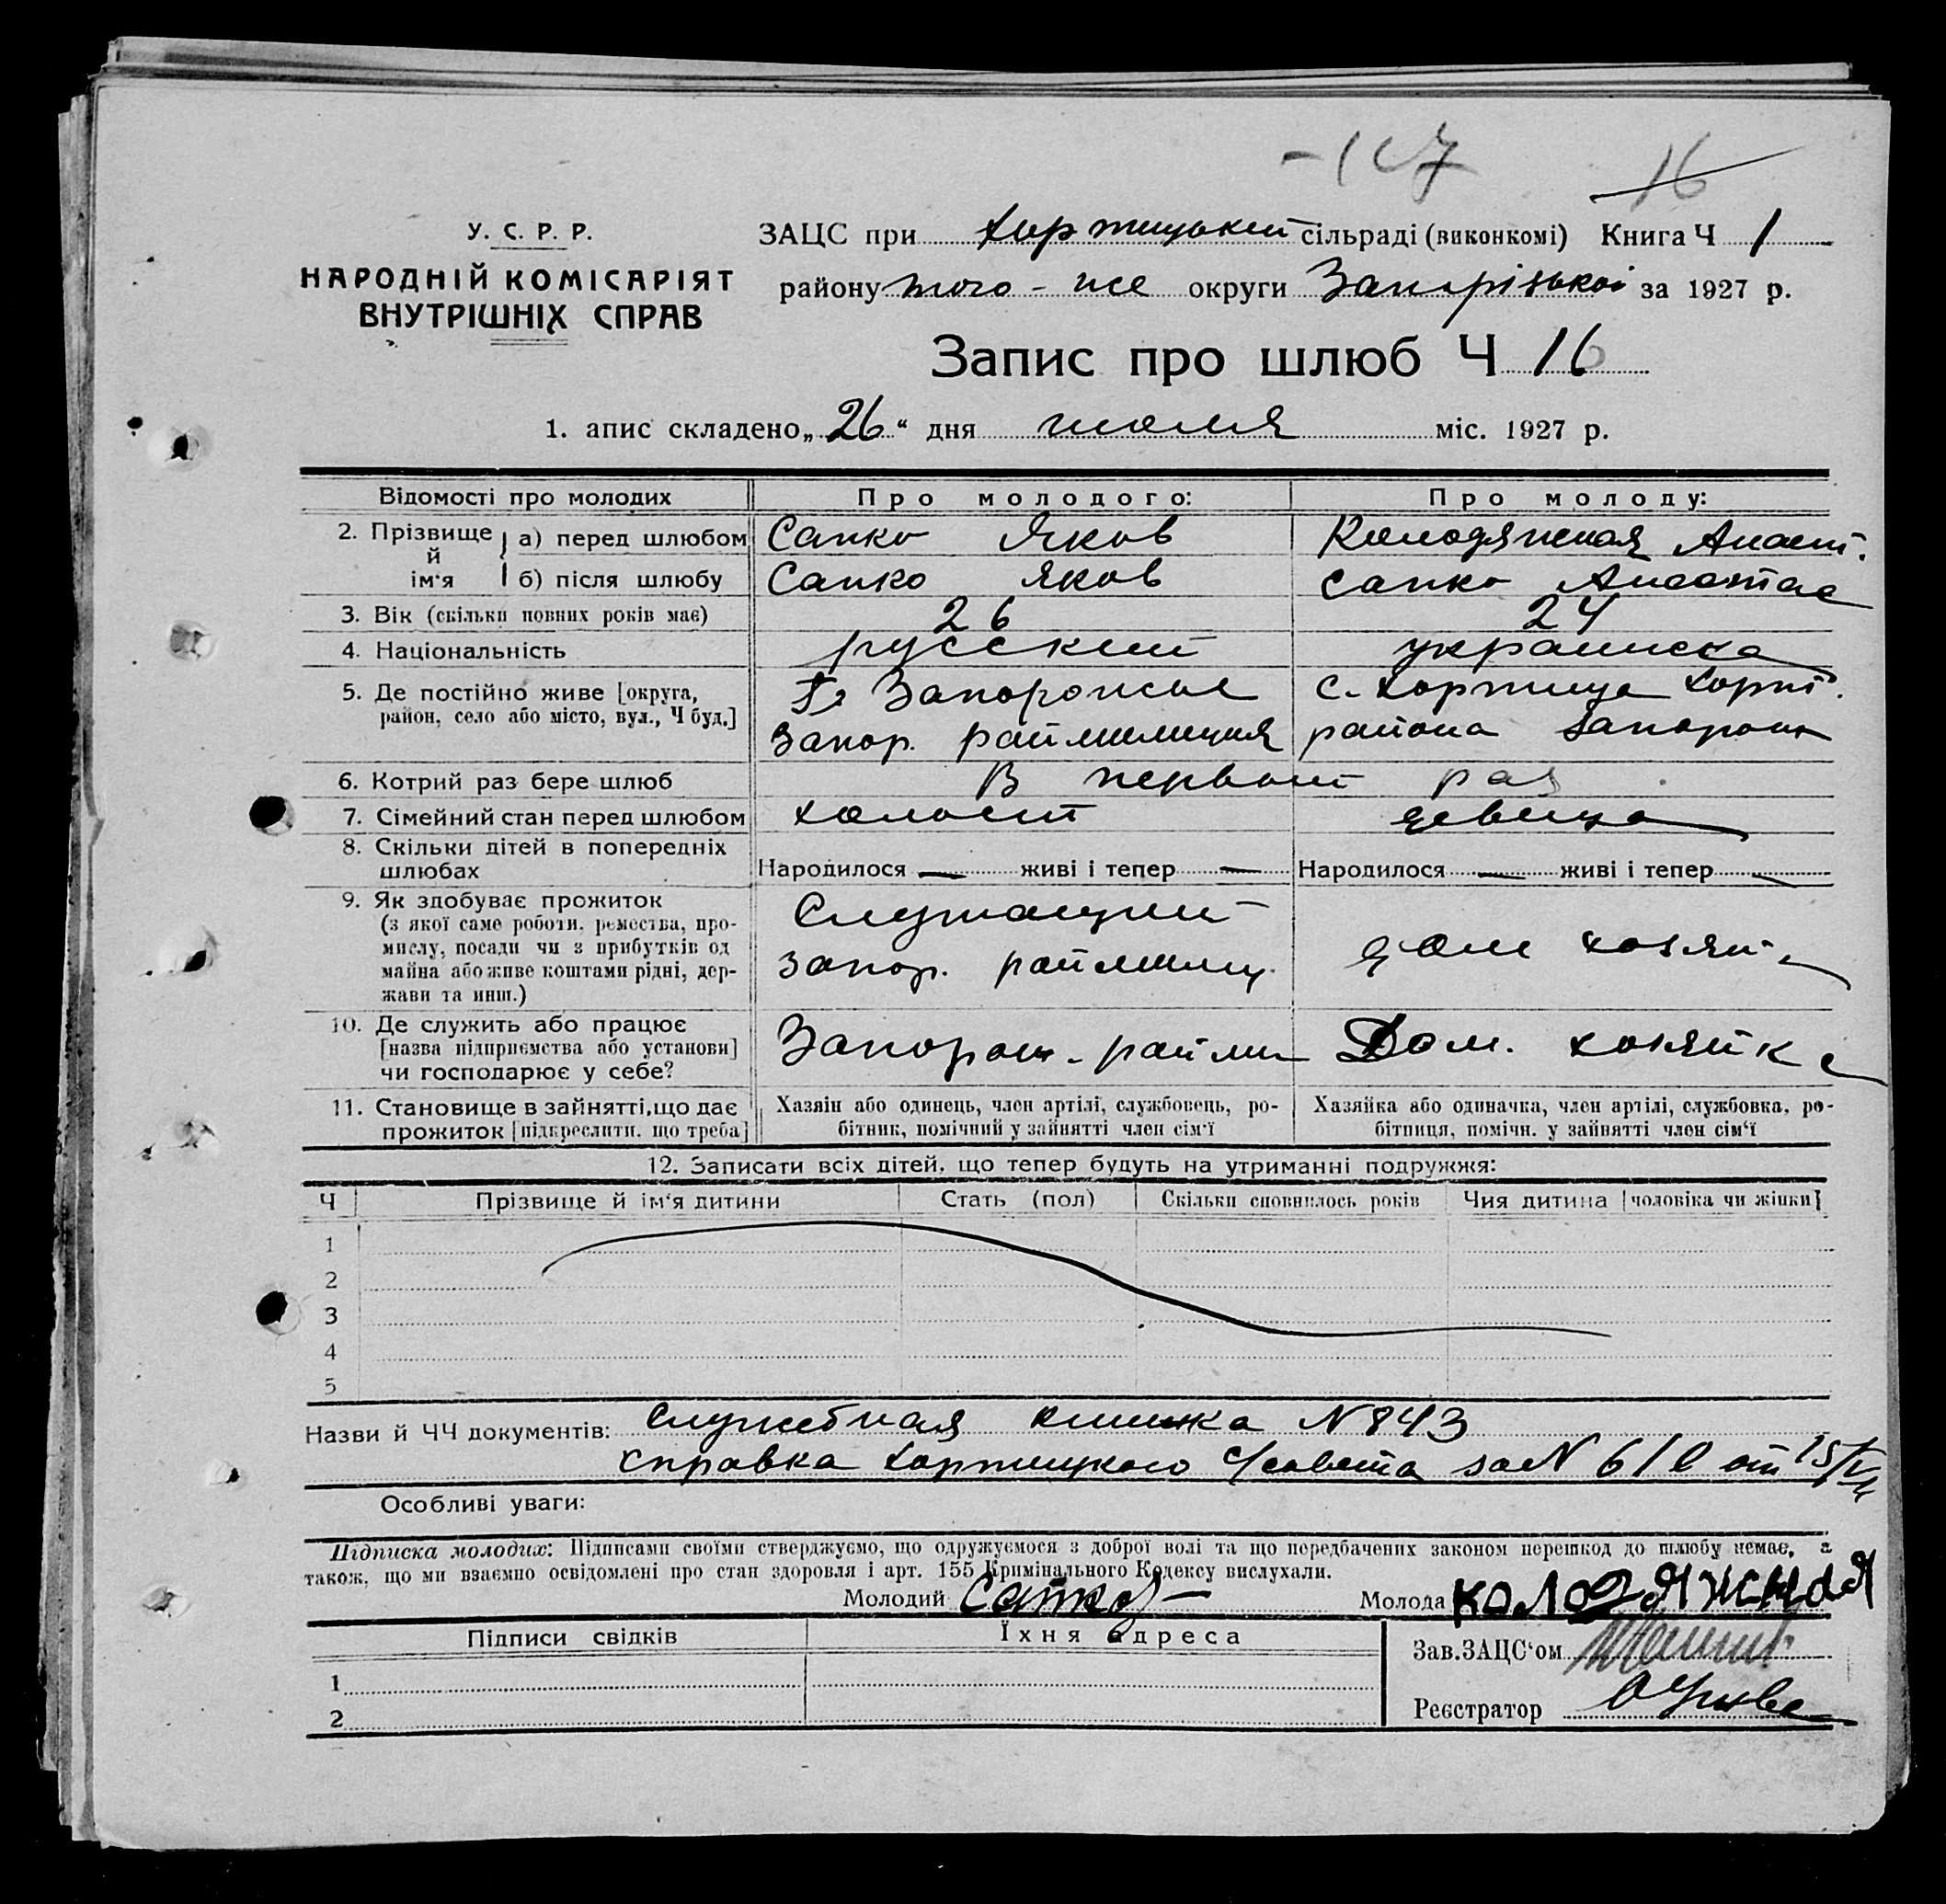 16
У. С. Р. Р.
НАРОДНІЙ КОМІСАРІЯТ
ВНУТРІШНІХ СПРАВ
ЗАЦС при Хортицькій сільраді (виконкомі) Книга Ч 1
району того-же округи Запорізькой за 1927 р.
Запис про шлюб Ч 16
1. апис складено „26“ дня июля міс. 1927 р.
Відомості про молодих Про молодого: Про молоду:
2. Прізвище й ім'я а) перед шлюбом Сапко Яков Колодяжная Анаст.
б) після шлюбу Сапко Яков Сапко Анастас
3. Вік (скільки повних років має) 26 24
4. Національність русский украинка
5. Де постійно живе [округа, Г. Запорожье с. Хортица Хорт.
район, село або місто, вул., Ч буд.] Запор. раймилиция района Запорож
6. Котрий раз бере шлюб В первый раз
7. Сімейний стан перед шлюбом холост девица
8. Скільки дітей в попередніх
шлюбах Народилося — живі і тепер — Народилося — живі і тепер —
9. Як здобуває прожиток Служащий
(з якої саме роботи, ремества, про-
мислу, посади чи з прибутків од запор. раймилиц. дом хозяй
майна або живе коштами рідні, дер-
жави та инш.)
10. Де служить або працює
[назва підприємства або установи] Запорож. райми Дом. хозяйка
чи господарює у себе?
11. Становище в зайнятті, що дає Хазяїн або одинець, член артілі, службовець, ро- Хазяйка або одиначка, член артілі, службовка, ро-
прожиток [підкреслити, що треба] бітник, помічний у зайнятті член сім'ї бітниця, помічн. у зайнятті член сім'ї
12. Записати всіх дітей, що тепер будуть на утриманні подружжя:
Ч Прізвище й ім'я дитини Стать (пол) Скільки сповнилось років Чия дитина [чоловіка чи жінки]
1
2
3
4
5
Назви й ЧЧ документів: Служебная книжка N 843
справка Хортицкого С/совета за N 610 от 15/VII
Особливі уваги:
Підписка молодих: Підписами своїми стверджуємо, що одружуємося з доброї волі та що передбачених законом перешкод до шлюбу немає, а
також, що ми взаємно освідомлені про стан здоровля і арт. 155 Кримінального Кодексу вислухали.
Молодий Сапко Молода Колодяжная
Підписи свідків Їхня адреса
Зав. ЗАЦС'ом
1
Реєстратор
2